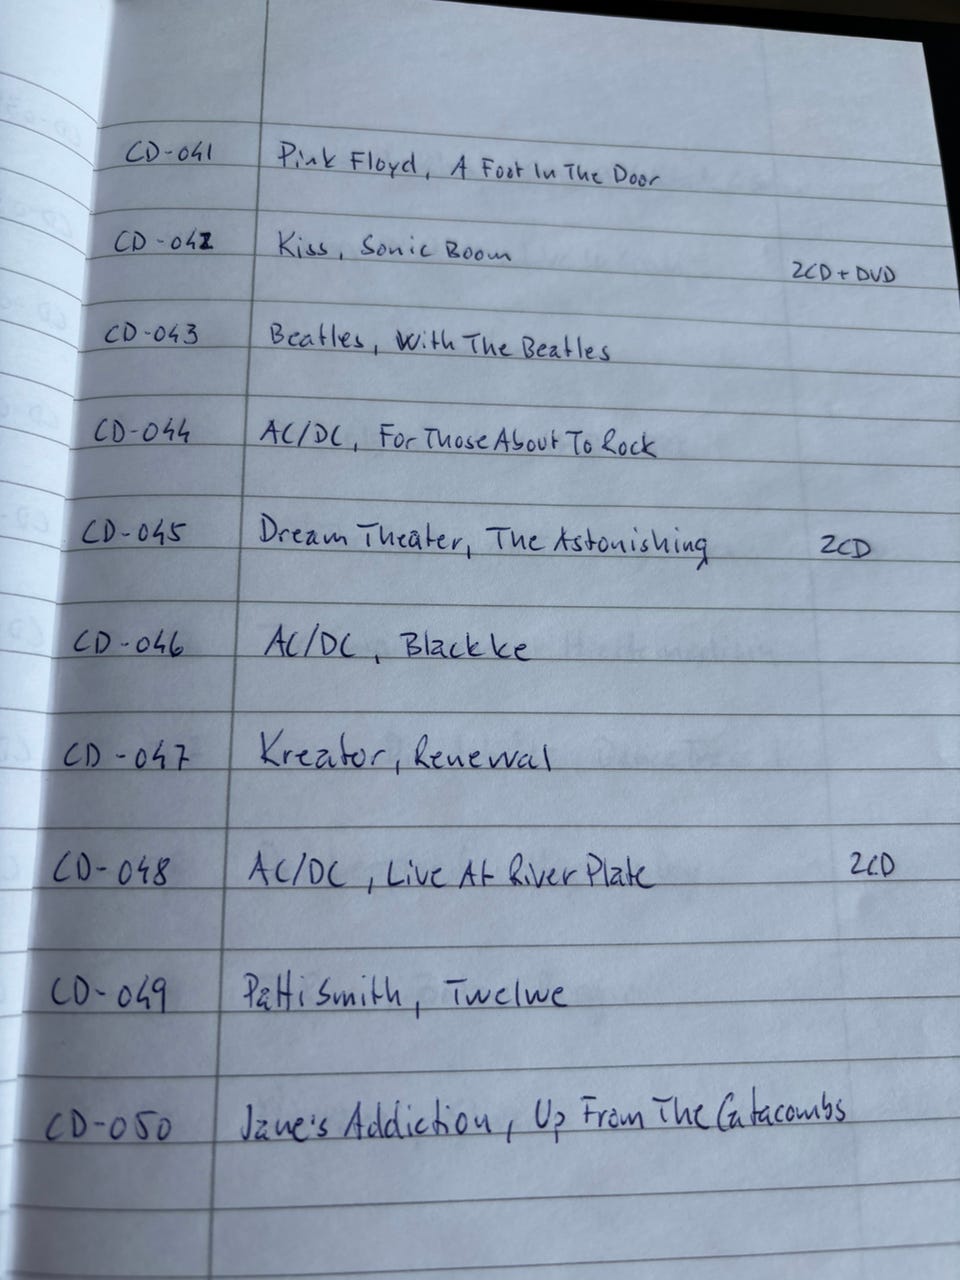 CD-041 Pink Floyd, A Foot In The Door
CD-042 Kiss, Sonic Boom 2CD+DVD
CD-043 Beatles, With The Beatles
CD-044 AC/DC, For Those About To Rock
CD-045 Dream Theater, The Astonishing 2CD
CD-046 AC/DC, Black Ice
CD-047 Kreator, Renewal
CD-048 AC/DC, Live At River Plate 2CD
CD-049 Patti Smith, Twelwe
CD-050 Jane's Addiction, Up From The Catacombs